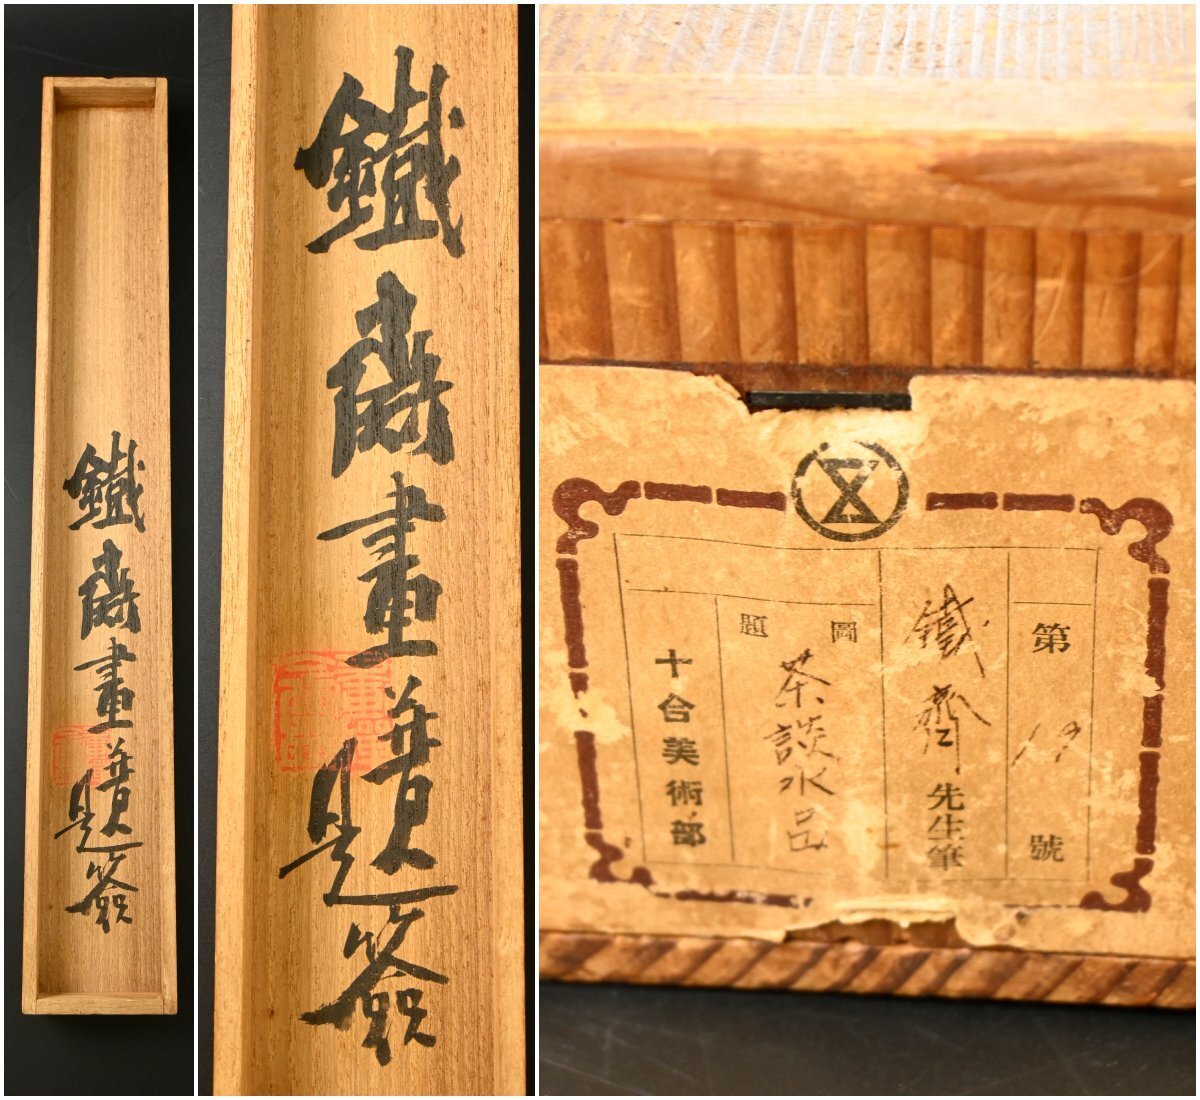 鐵齋畫并題簽
鐵齋畫并題簽
第19號
鐵齋先生筆
圖題
茶談水品
十合美術部